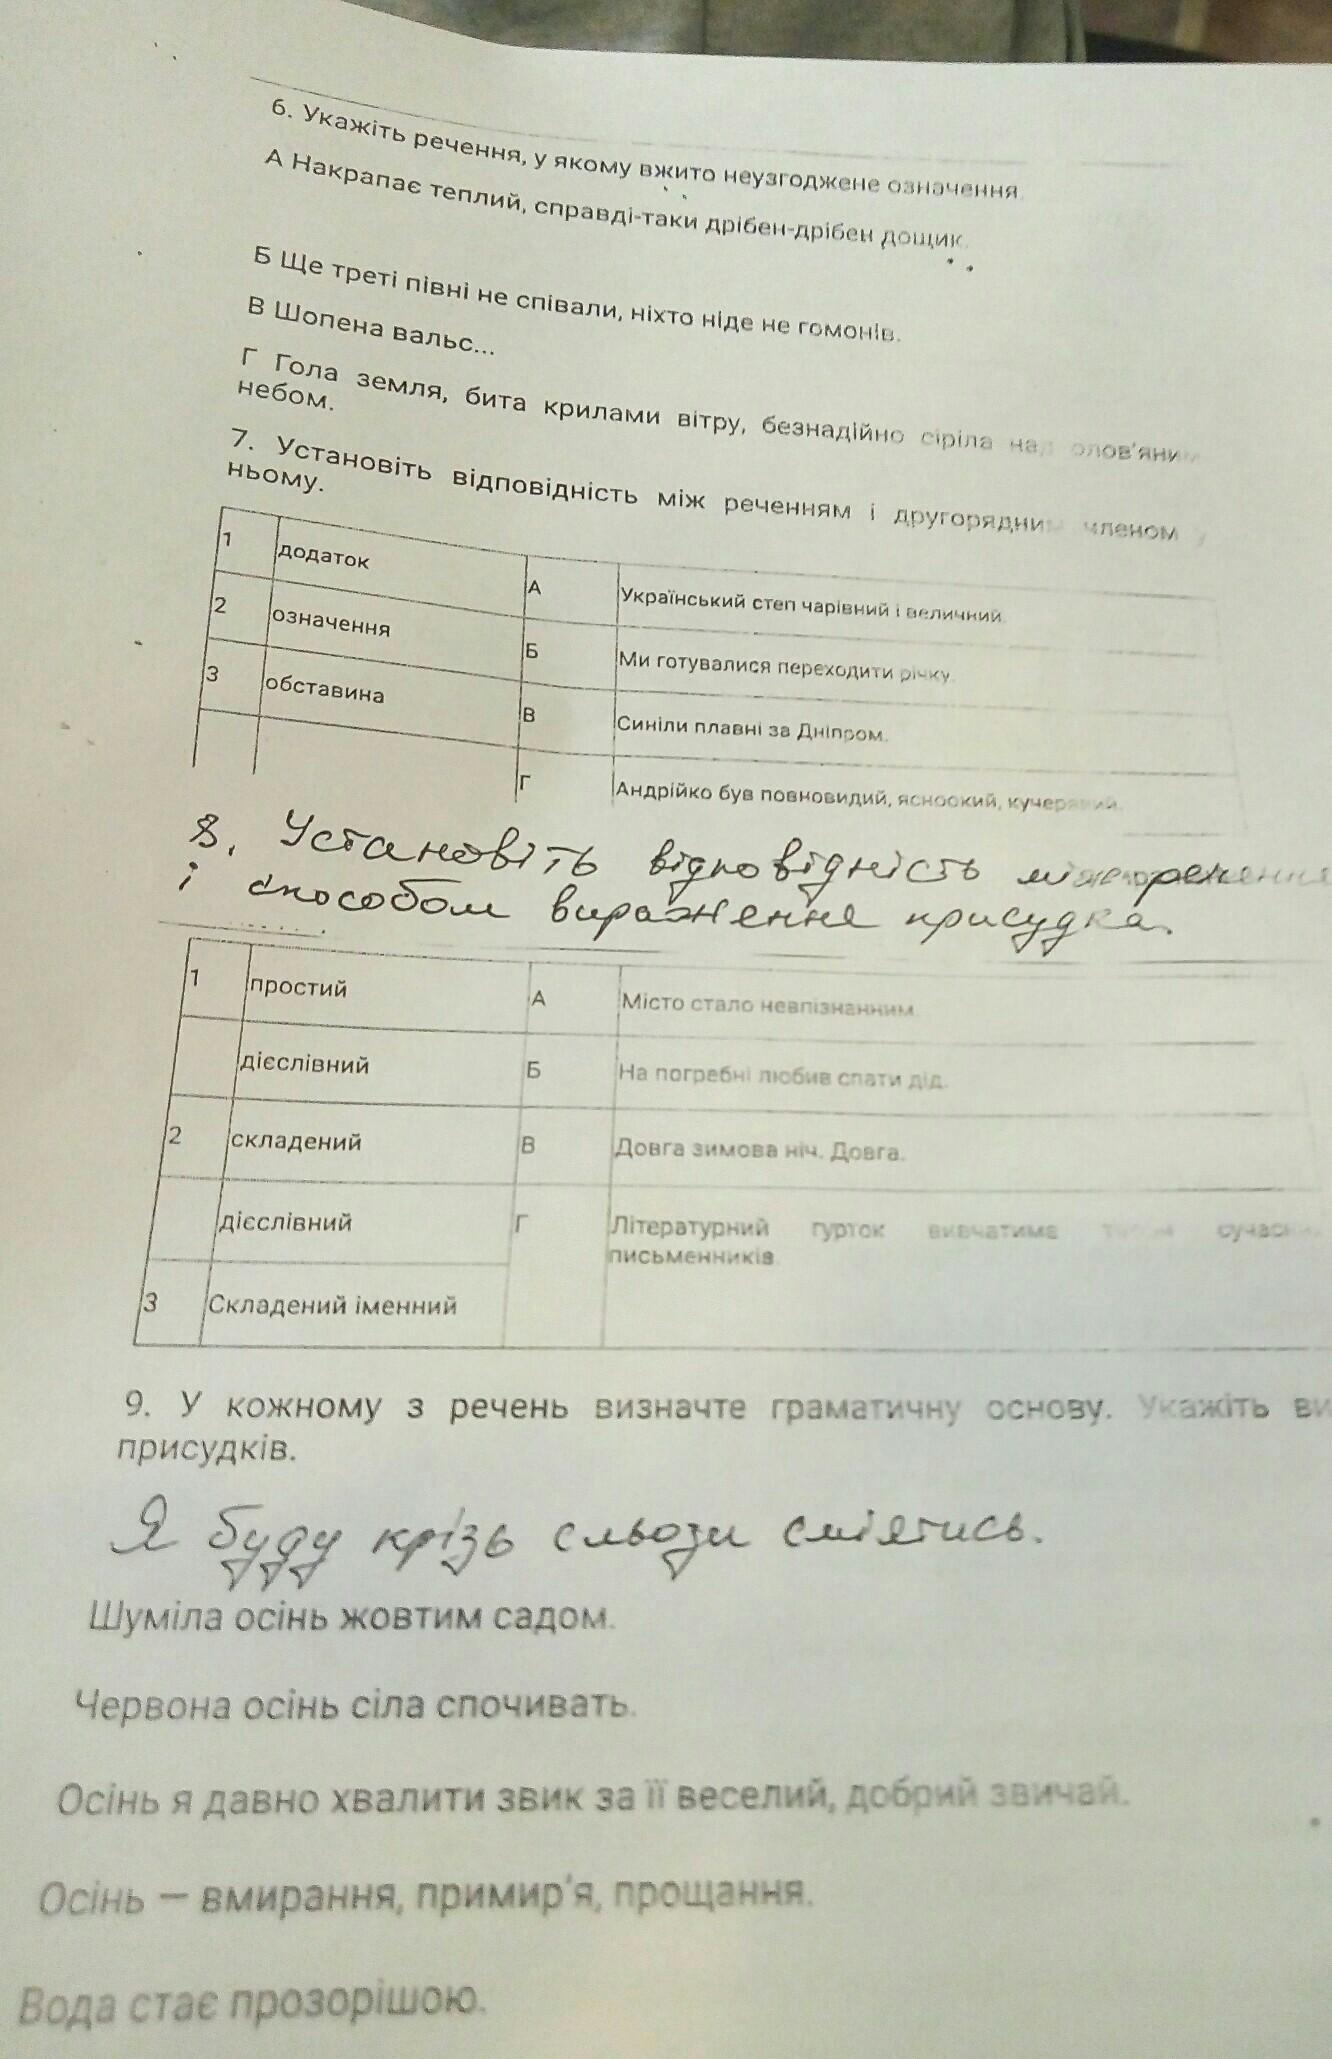 6. Укажіть речення, у якому вжито неузгоджене означення.
А Накрапає теплий, справді-таки дрібен-дрібен дощик.
Б Ще треті півні не співали, ніхто ніде не гомонів.
В Шопена вальс...
Г Гола земля, бита крилами вітру, безнадійно сіріла над олов'яним
небом.
7. Установіть відповідність між реченням і другорядним членом у
ньому.
1 додаток А Український степ чарівний і величний.
2 означення Б Ми готувалися переходити річку.
3 обставина В Синіли плавні за Дніпром.
Г Андрійко був повновидий, ясноокий, кучерявий.
8. Установіть відповідність між
і способом вираження присудка.
1 простий А Місто стало невпізнанним.
дієслівний Б На погребні любив спати дід.
2 складений В Довга зимова ніч. Довга.
дієслівний Г Літературний гурток вивчатиме
письменників.
3 Складений іменний
9. У кожному з речень визначте граматичну основу. Укажіть
присудків.
Я буду крізь сльози сміятись.
Шуміла осінь жовтим садом.
Червона осінь сіла спочивать.
Осінь я давно хвалити звик за її веселий, добрий звичай.
Осінь — вмирання, примир'я, прощання.
Вода стає прозорішою.